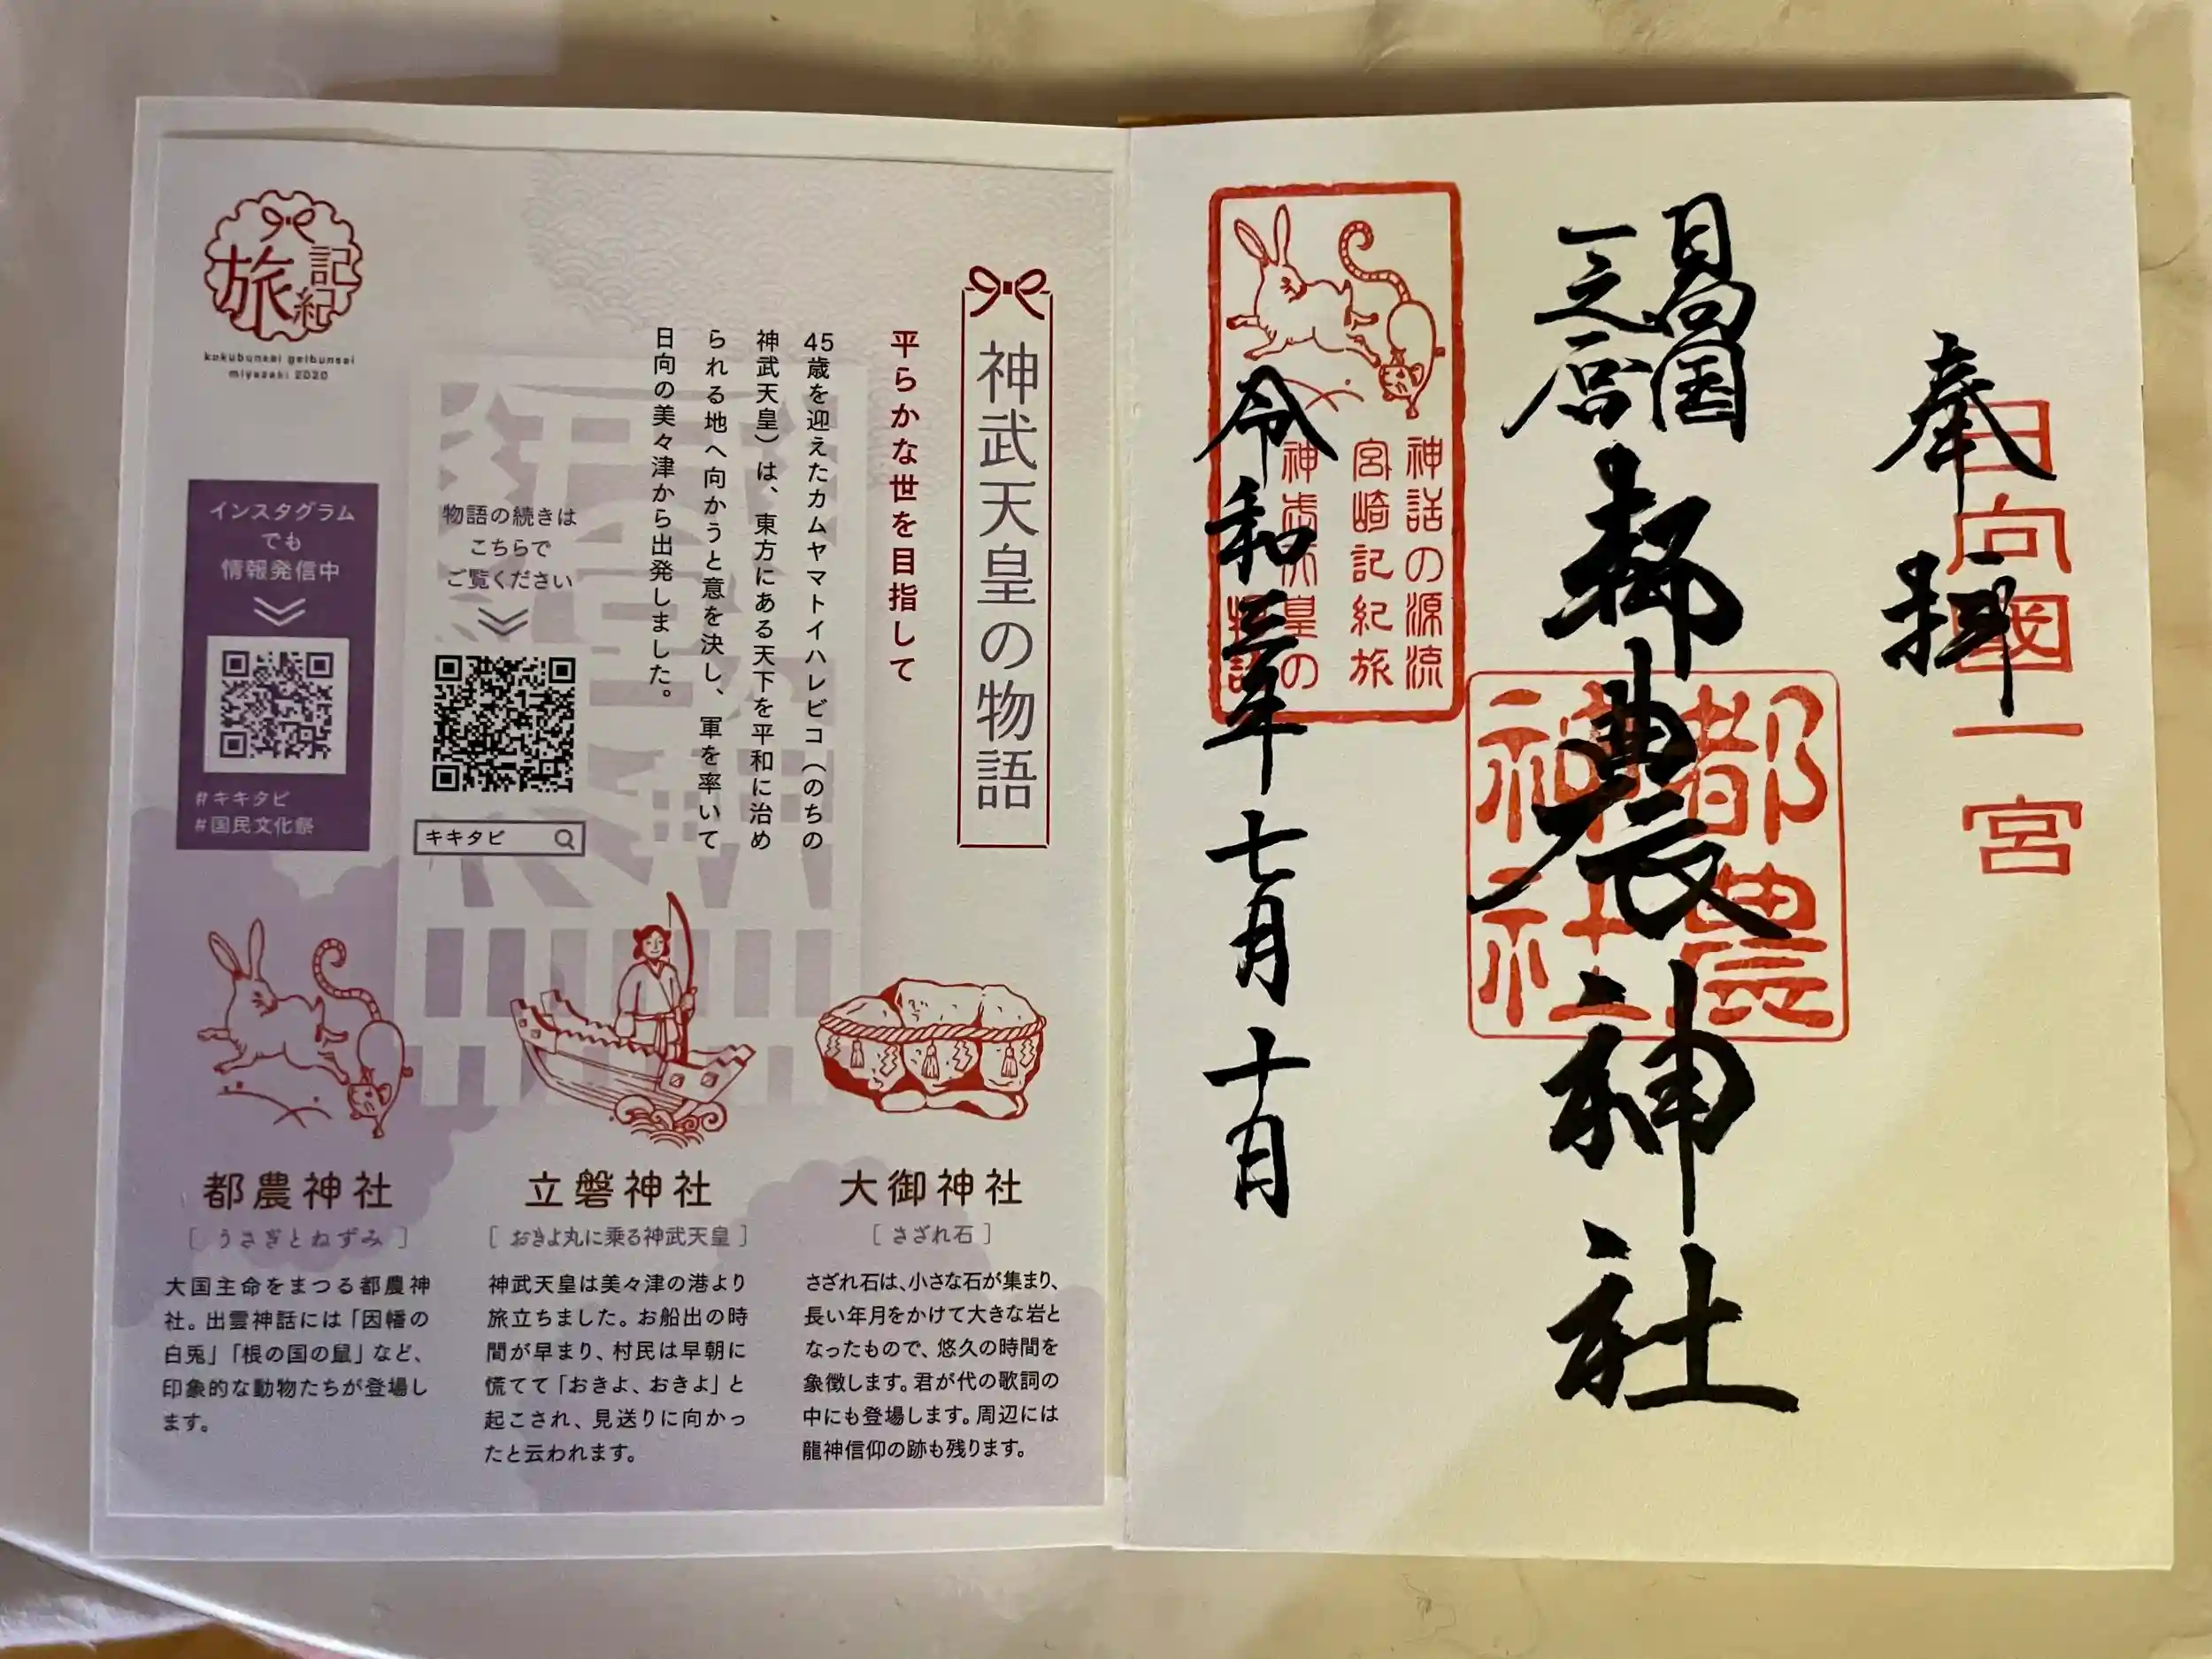 奉拝
日向國一宮
日向国
一之宮
都農神社
都農
神社
令和三年七月十日
神話の源流
宮崎記紀旅
神武天皇の
物語
神武天皇の物語
平らかな世を目指して
45歳を迎えたカムヤマトイハレビコ（のちの
神武天皇）は、東方にある天下を平和に治め
られる地へ向かうと意を決し、軍を率いて
日向の美々津から出発しました。
記紀
旅
kokubunsai geibunsai
miyazaki 2020
物語の続きは
こちらで
ご覧ください
キキタビ
インスタグラム
でも
情報発信中
#キキタビ
#国民文化祭
大御神社
［さざれ石］
さざれ石は、小さな石が集まり、
長い年月をかけて大きな岩と
なったもので、悠久の時間を
象徴します。君が代の歌詞の
中にも登場します。周辺には
龍神信仰の跡も残ります。
立磐神社
［おきよ丸に乗る神武天皇］
神武天皇は美々津の港より
旅立ちました。お船出の時
間が早まり、村民は早朝に
慌てて「おきよ、おきよ」と
起こされ、見送りに向かっ
たと云われます。
都農神社
［うさぎとねずみ］
大国主命をまつる都農神
社。出雲神話には「因幡の
白兎」「根の国の鼠」など、
印象的な動物たちが登場し
ます。